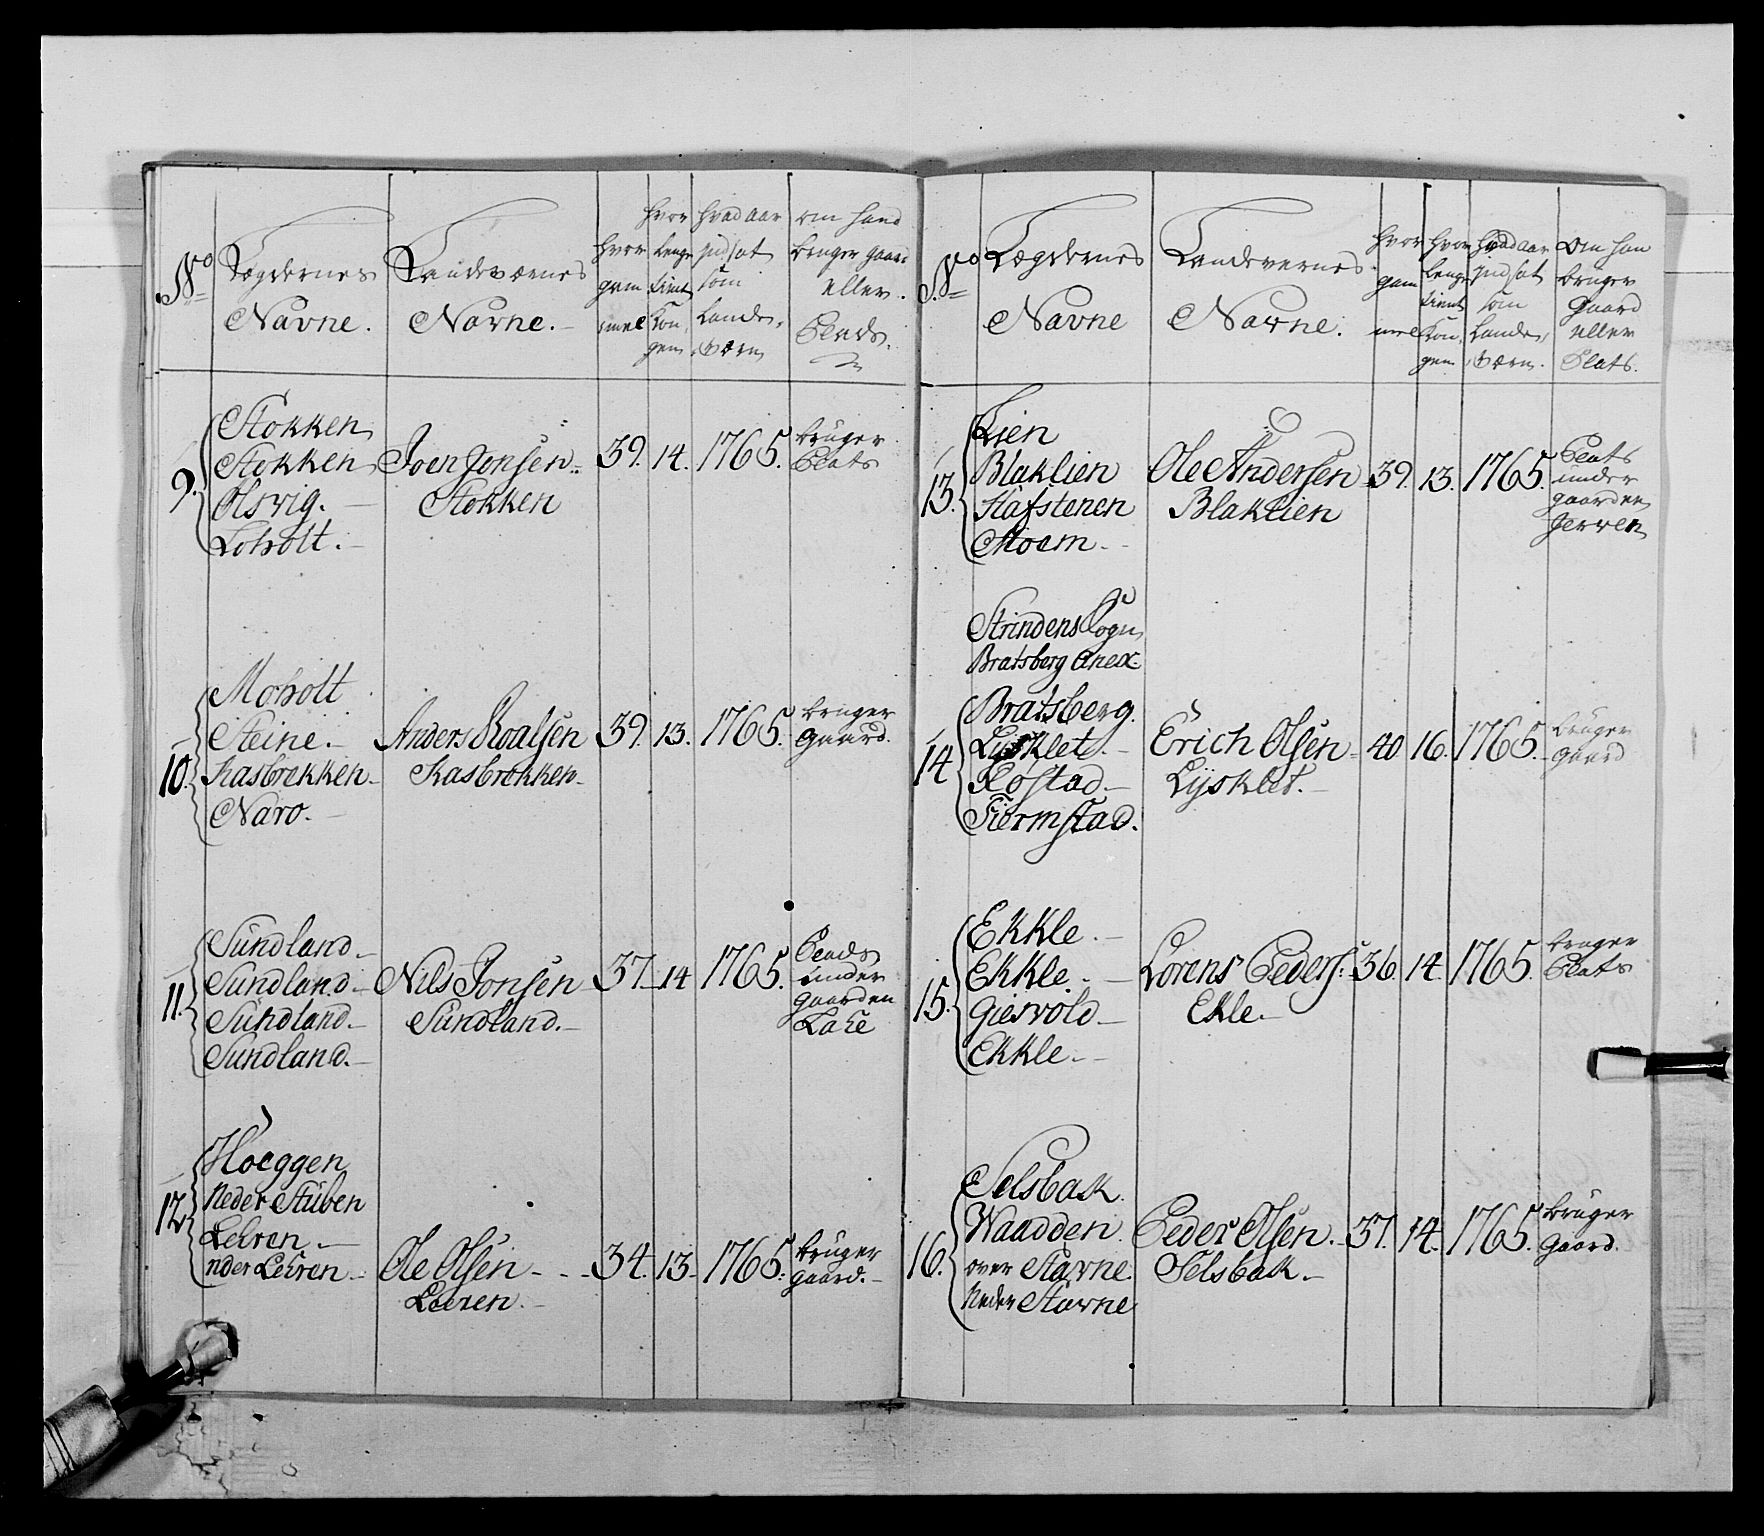 No
Lægdernes
Navne.
Landeværnes
Navne.
hvor
gam
mel
hvor
lenge
tient
Kon
gen
hvad aar
indsat
som
Lande,
værn
om hand
bruger gaard
eller
Plads.
9.
Stokken
Stokken
Olsvig.
Loholt.
Joen Jonsen.
Stokken
39.
14.
1765.
bruger
Plats
10.
Moholt
Steine.
Kasbrekken
Naro.
Anders Roalsen
Kasbrokken
39.
13.
1765.
bruger
Gaard.
11.
Sundland
Sundland
Sundland
Sundland.
Nils Jonsen
Sundland.
37.
14
1765.
Plads
under
gaarden
12
Hoeggen
Neder Stuben
Leeren
nder Leeren
Ole Olsen
Leeren.
34.
13.
1765.
bruger
gaard.
No
Lægdernes
Navne
Landevernes
Navne.
hvor
gam
mel
hvor
lenge
tient
Kon,
gen
hvad aar
indsat
som
Lande,
værn.
Om han
bruger
Gaard
eller
Plats.
13.
Lien
Blaklien
Hafstenen
Moem.
Ole Andersen
Blaklien
39.
13.
1765.
Plats
under
gaarden
Jerven
Strindens Sogn
Bratsberg Anex.
14
Bratsberg.
Lysklet.
Rostad
Tiermstad.
Erich Olsen
Lysklet.
40
16.
1765.
bruger
gaard
15.
Ekkle.
Ekkle.
Giesvold
Ekkle.
Lorens Peders:
Ekle.
36.
14.
1765.
bruger
Plats
16.
Selsbak.
Waadden.
over Stavne.
Neder Stavne
Peder Olsen.
Selsbak.
37.
14.
1765.
bruger
Gaard.